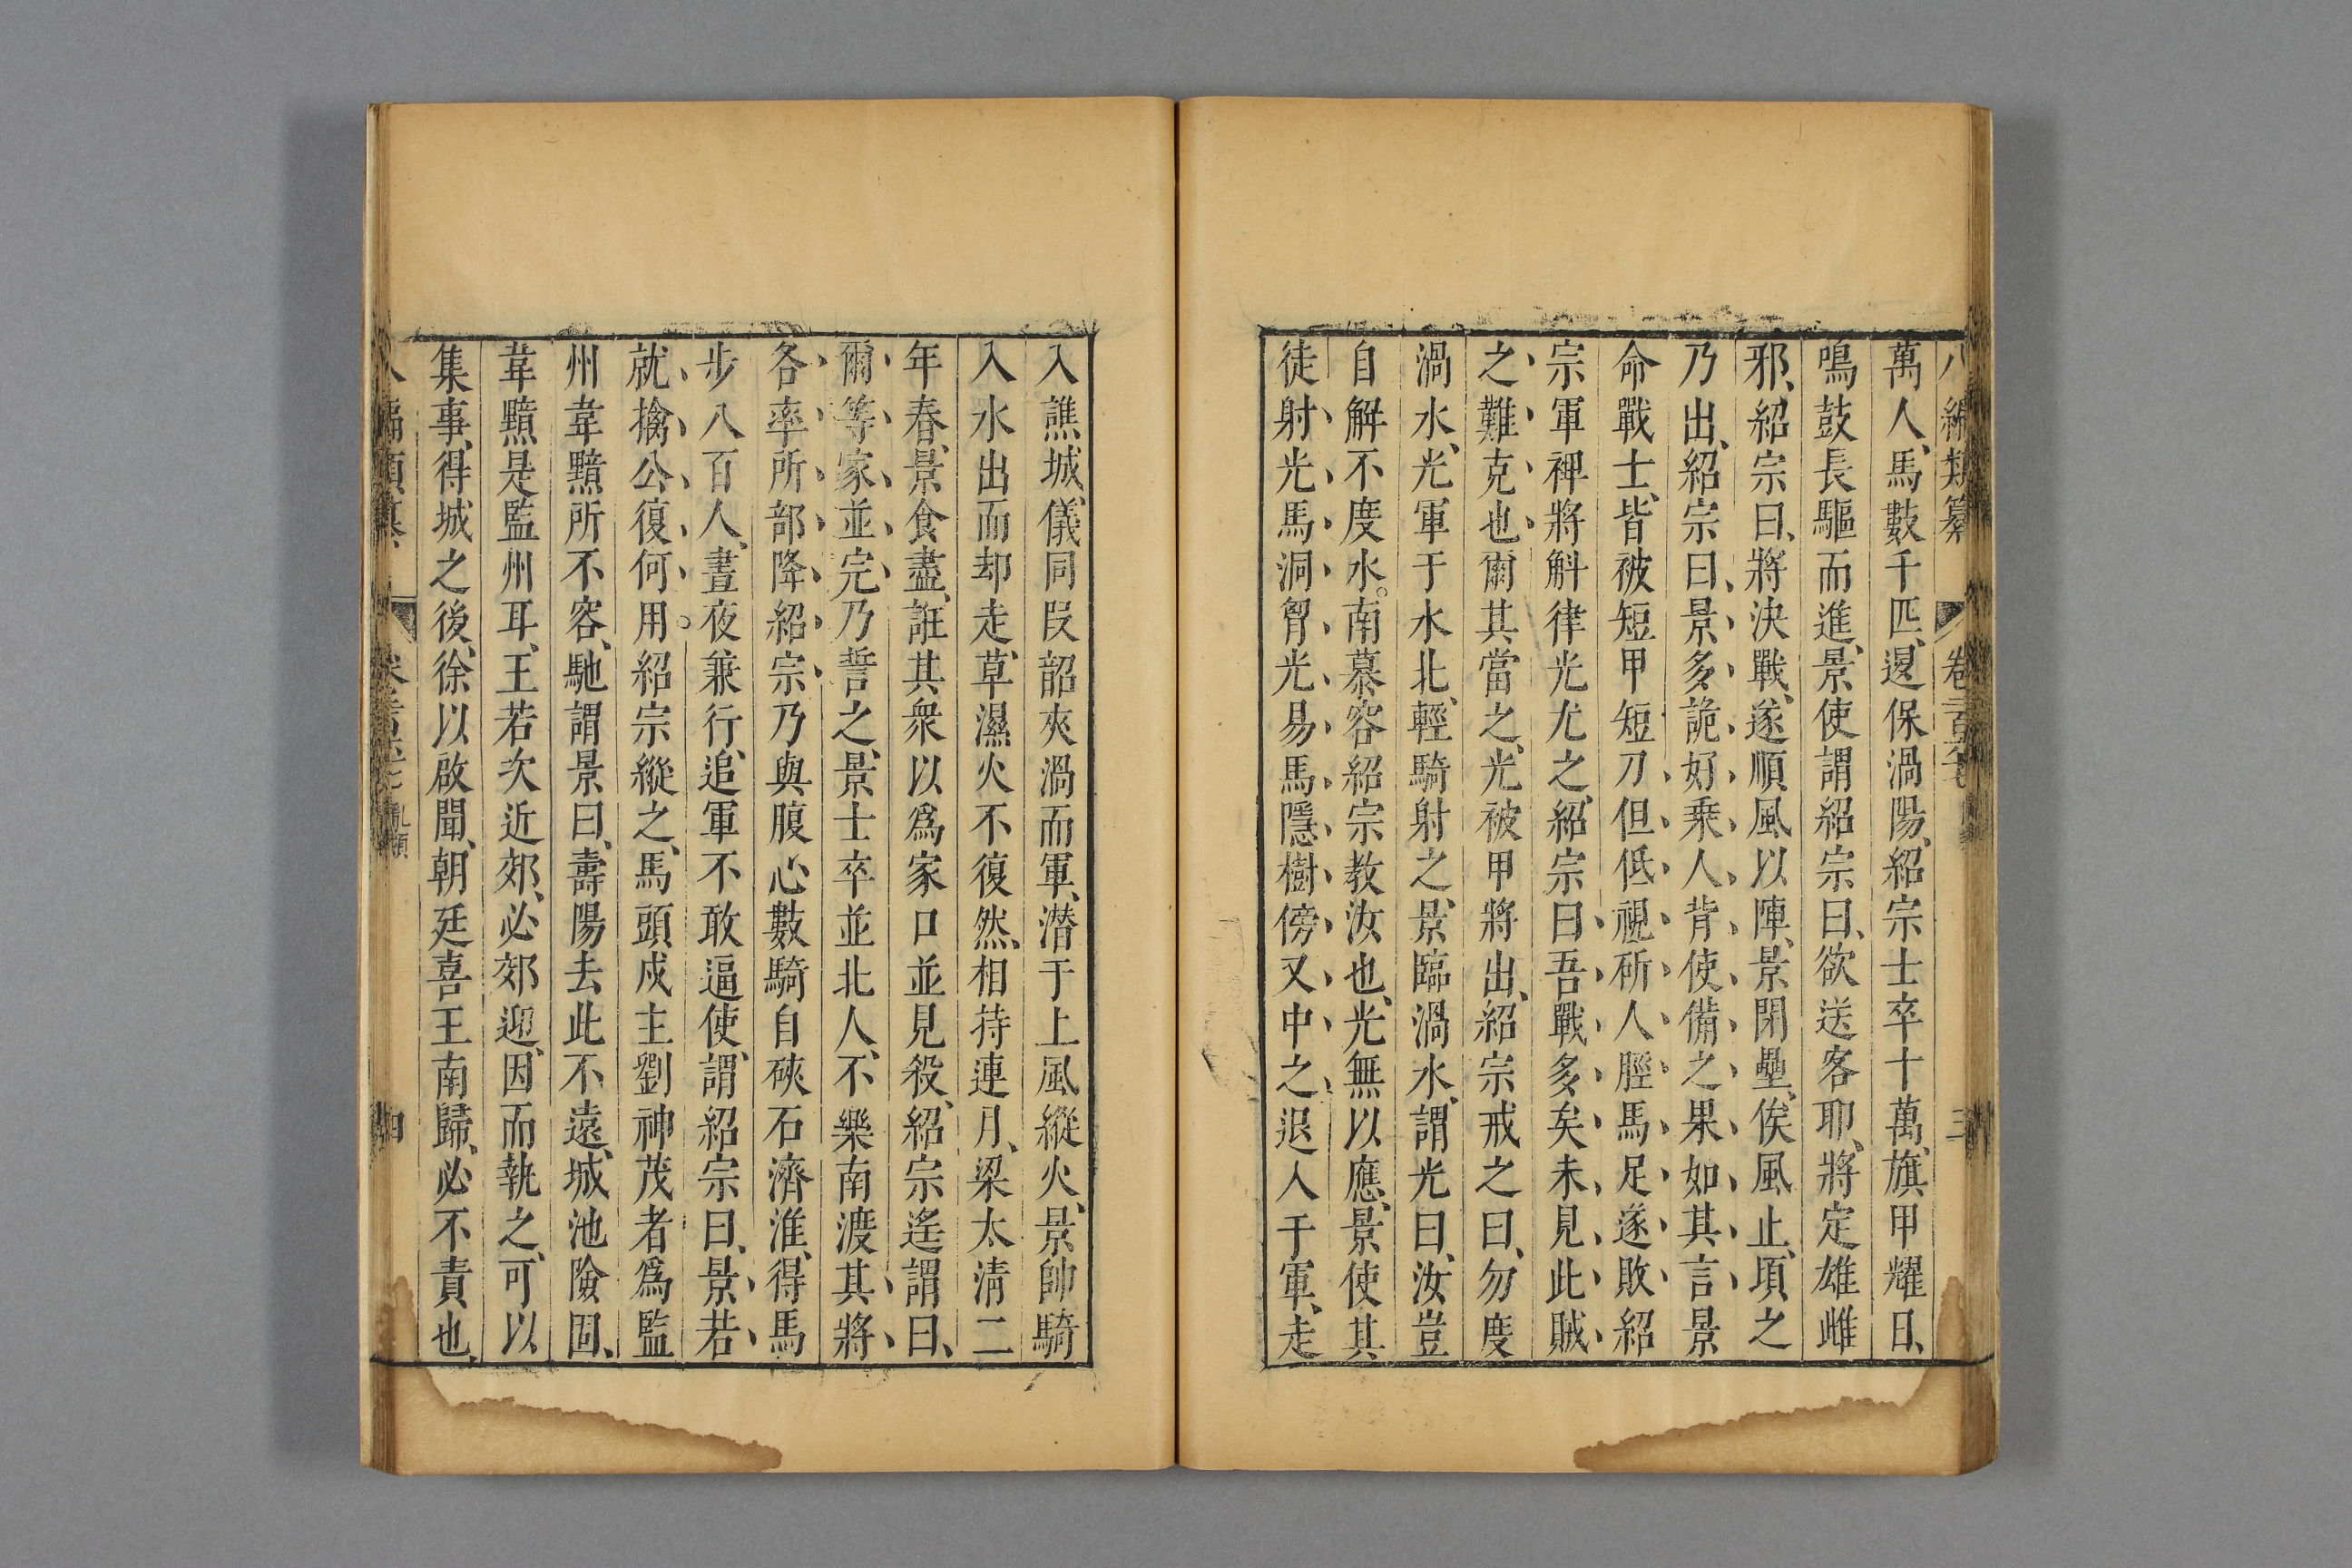 八編類纂 卷二百 三
萬人、馬數千匹、退保渦陽、紹宗士卒十萬、旗甲耀日、
鳴鼓長驅而進、景使謂紹宗曰、欲送客耶、將定雄雌
邪、紹宗曰、將決戰、遂順風以陣、景閉壘、俟風止、頃之
乃出、紹宗曰、景多詭、好乗人背、使備之、果如其言、景
命戰士、皆被短甲短刀、但低視、斫人脛馬足、遂敗紹
宗軍、裨將斛律光尤之、紹宗曰、吾戰多矣、未見此賊
之難克也、爾其當之、光被甲將出、紹宗戒之曰、勿度
渦水、光軍于水北、輕騎射之、景臨渦水、謂光曰、汝豈
自解不度水。南慕容紹宗教汝也、光無以應、景使其
徒射光馬洞胷、光易馬隱樹、傍又中之、退入于軍、走
入譙城、儀同段韶夾渦而軍、潛于上風縱火、景帥騎
入水出而却走、草濕火不復然、相持連月、梁太清二
年春、景食盡、誑其衆以爲家口並見殺、紹宗遙謂曰、
爾等家並完、乃誓之、景士卒並北人、不樂南渡、其將
各率所部降紹宗、乃與腹心數騎自硤石濟淮、得馬
步八百人、晝夜兼行、追軍不敢逼、使謂紹宗曰、景若
就擒、公復何用。紹宗縱之、馬頭戍主劉神茂者爲監
州韋黯所不容、馳謂景曰、壽陽去此不遠、城池險固、
韋黯是監州耳、王若次近郊、必郊迎、因而執之、可以
集事、得城之後、徐以啟聞、朝廷喜王南歸、必不責也、
八編類纂 四